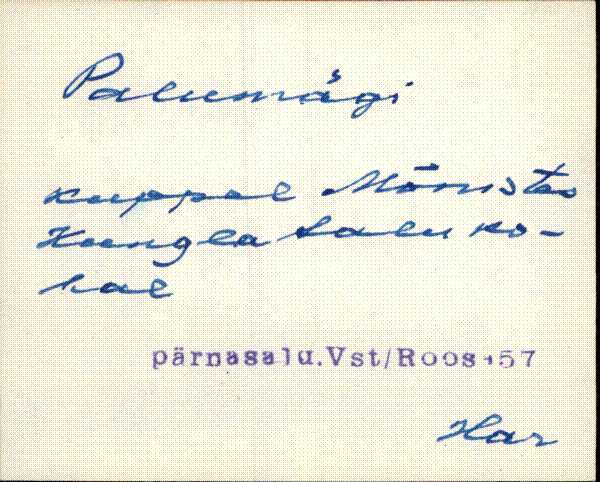 Palumägi
kuppel Mõnistes
Kungla talu ko-
hal
pärnasalu.Vst/Roos 57
Har